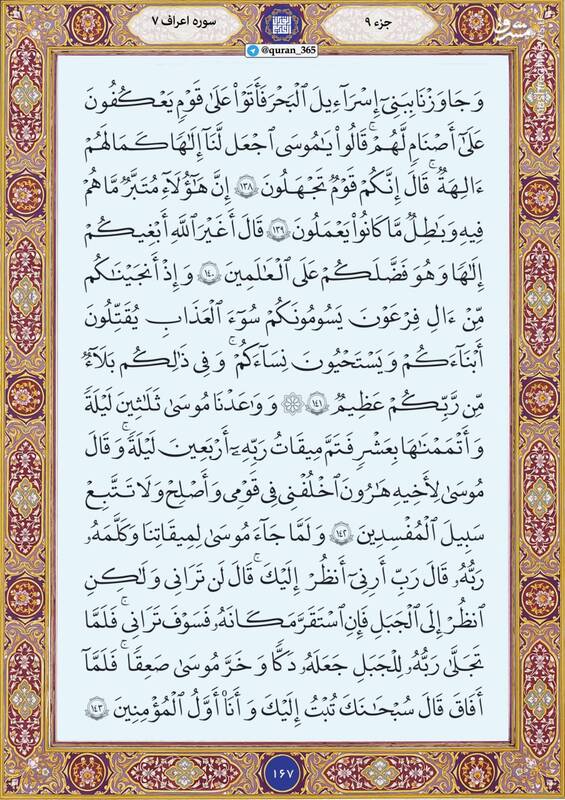 جزء ۹
سوره اعراف ۷
@quran_365
وَجَٰوَزْنَا بِبَنِىٓ إِسْرَٰٓءِيلَ ٱلْبَحْرَ فَأَتَوْا۟ عَلَىٰ قَوْمٍ يَعْكُفُونَ
عَلَىٰٓ أَصْنَامٍ لَّهُمْ ۚ قَالُوا۟ يَٰمُوسَى ٱجْعَل لَّنَآ إِلَٰهًا كَمَا لَهُمْ
ءَالِهَةٌ ۚ قَالَ إِنَّكُمْ قَوْمٌ تَجْهَلُونَ ۝۱۳۸ إِنَّ هَٰٓؤُلَآءِ مُتَبَّرٌ مَّا هُمْ
فِيهِ وَبَٰطِلٌ مَّا كَانُوا۟ يَعْمَلُونَ ۝۱۳۹ قَالَ أَغَيْرَ ٱللَّهِ أَبْغِيكُمْ
إِلَٰهًا وَهُوَ فَضَّلَكُمْ عَلَى ٱلْعَٰلَمِينَ ۝۱۴۰ وَإِذْ أَنجَيْنَٰكُم
مِّنْ ءَالِ فِرْعَوْنَ يَسُومُونَكُمْ سُوٓءَ ٱلْعَذَابِ يُقَتِّلُونَ
أَبْنَآءَكُمْ وَيَسْتَحْيُونَ نِسَآءَكُمْ ۚ وَفِى ذَٰلِكُم بَلَآءٌ
مِّن رَّبِّكُمْ عَظِيمٌ ۝۱۴۱ ۞ وَوَٰعَدْنَا مُوسَىٰ ثَلَٰثِينَ لَيْلَةً
وَأَتْمَمْنَٰهَا بِعَشْرٍ فَتَمَّ مِيقَٰتُ رَبِّهِۦٓ أَرْبَعِينَ لَيْلَةً ۚ وَقَالَ
مُوسَىٰ لِأَخِيهِ هَٰرُونَ ٱخْلُفْنِى فِى قَوْمِى وَأَصْلِحْ وَلَا تَتَّبِعْ
سَبِيلَ ٱلْمُفْسِدِينَ ۝۱۴۲ وَلَمَّا جَآءَ مُوسَىٰ لِمِيقَٰتِنَا وَكَلَّمَهُۥ
رَبُّهُۥ قَالَ رَبِّ أَرِنِىٓ أَنظُرْ إِلَيْكَ ۚ قَالَ لَن تَرَىٰنِى وَلَٰكِنِ
ٱنظُرْ إِلَى ٱلْجَبَلِ فَإِنِ ٱسْتَقَرَّ مَكَانَهُۥ فَسَوْفَ تَرَىٰنِى ۚ فَلَمَّا
تَجَلَّىٰ رَبُّهُۥ لِلْجَبَلِ جَعَلَهُۥ دَكًّا وَخَرَّ مُوسَىٰ صَعِقًا ۚ فَلَمَّآ
أَفَاقَ قَالَ سُبْحَٰنَكَ تُبْتُ إِلَيْكَ وَأَنَا۠ أَوَّلُ ٱلْمُؤْمِنِينَ ۝۱۴۳
۱۶۷